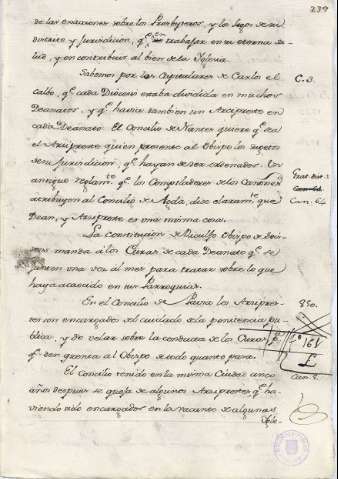 239
de las exenciones sobre los Presbyteros, y los legos de su
distrito y Jurisdicion, qe. trabajar en su eterna sa-
lud, y en contribuir al bien de la Iglesia.
Sabemos por las Capitulares de Carlos el C. 3.
calbo, qe. cada Diocesi estaba dividida en muchos
Deanatos, y qe. havia tambien un Arcipreste en
cada Deanato. El Concilio de Nantes quiere qe. sea
el Arcipreste quien presente al Obispo los sugetos
de su Jurisdicion, qe. hayan de ser ordenados. Un
antiguo reglamto. qe. los Compiladores de los Canones
atribuyen al Concilio de Agda, dice claramte. que Can. 64
Dean, y Arcipreste es una misma cosa.
La constitucion de Riculfo Obispo de Sois-
sons manda a los Curas de cada Deanato qe. se
junten una vez al mes para tratar sobre lo que
haya acaecido en sus Parroquias.
En el Concilio de Pavia los Arcipres- 850.
tes son encargados del cuidado de la penitencia pu-
blica, y de velar sobre la conducta de los Curas pa.
qe. den quenta al Obispo de todo quanto pasa.
El Concilio tenido en la misma Ciudad cinco Can. 2.
años despues se queja de algunos Arciprestes qe. ha-
viendo sido encargados en la vacante de algunas
Igle-